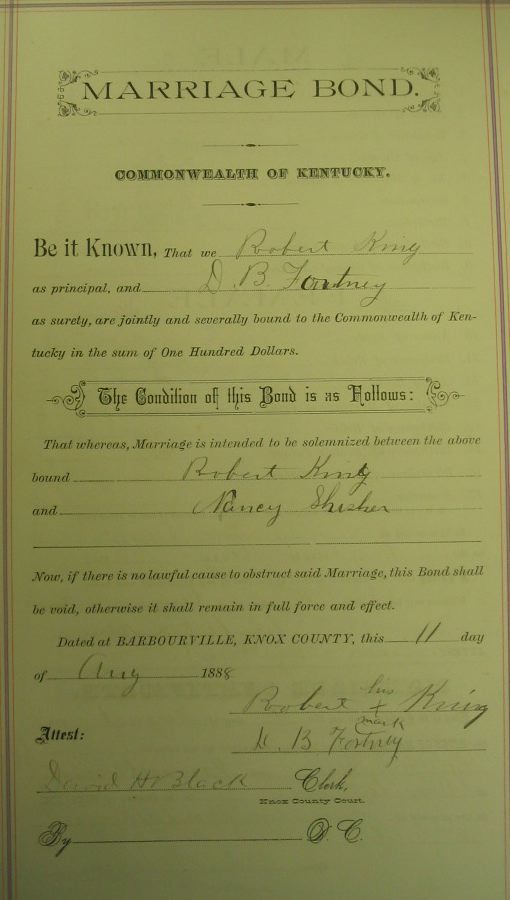 MARRIAGE BOND.
COMMONWEALTH OF KENTUCKY.
Be it Known, That we Robert King
as principal, and D. B. Fortney
as surety, are jointly and severally bound to the Commonwealth of Ken-
tucky in the sum of One Hundred Dollars.
The Condition of this Bond is as Follows:
That whereas, Marriage is intended to be solemnized between the above
bound Robert King
and Nancy
Now, if there is no lawful cause to obstruct said Marriage, this Bond shall
be void, otherwise it shall remain in full force and effect.
Dated at BARBOURVILLE, KNOX COUNTY, this 11 day
of Aug 1888
Robert his x mark King
Attest: D. B Fortney
David H Black Clerk,
Knox County Court.
By D. C.